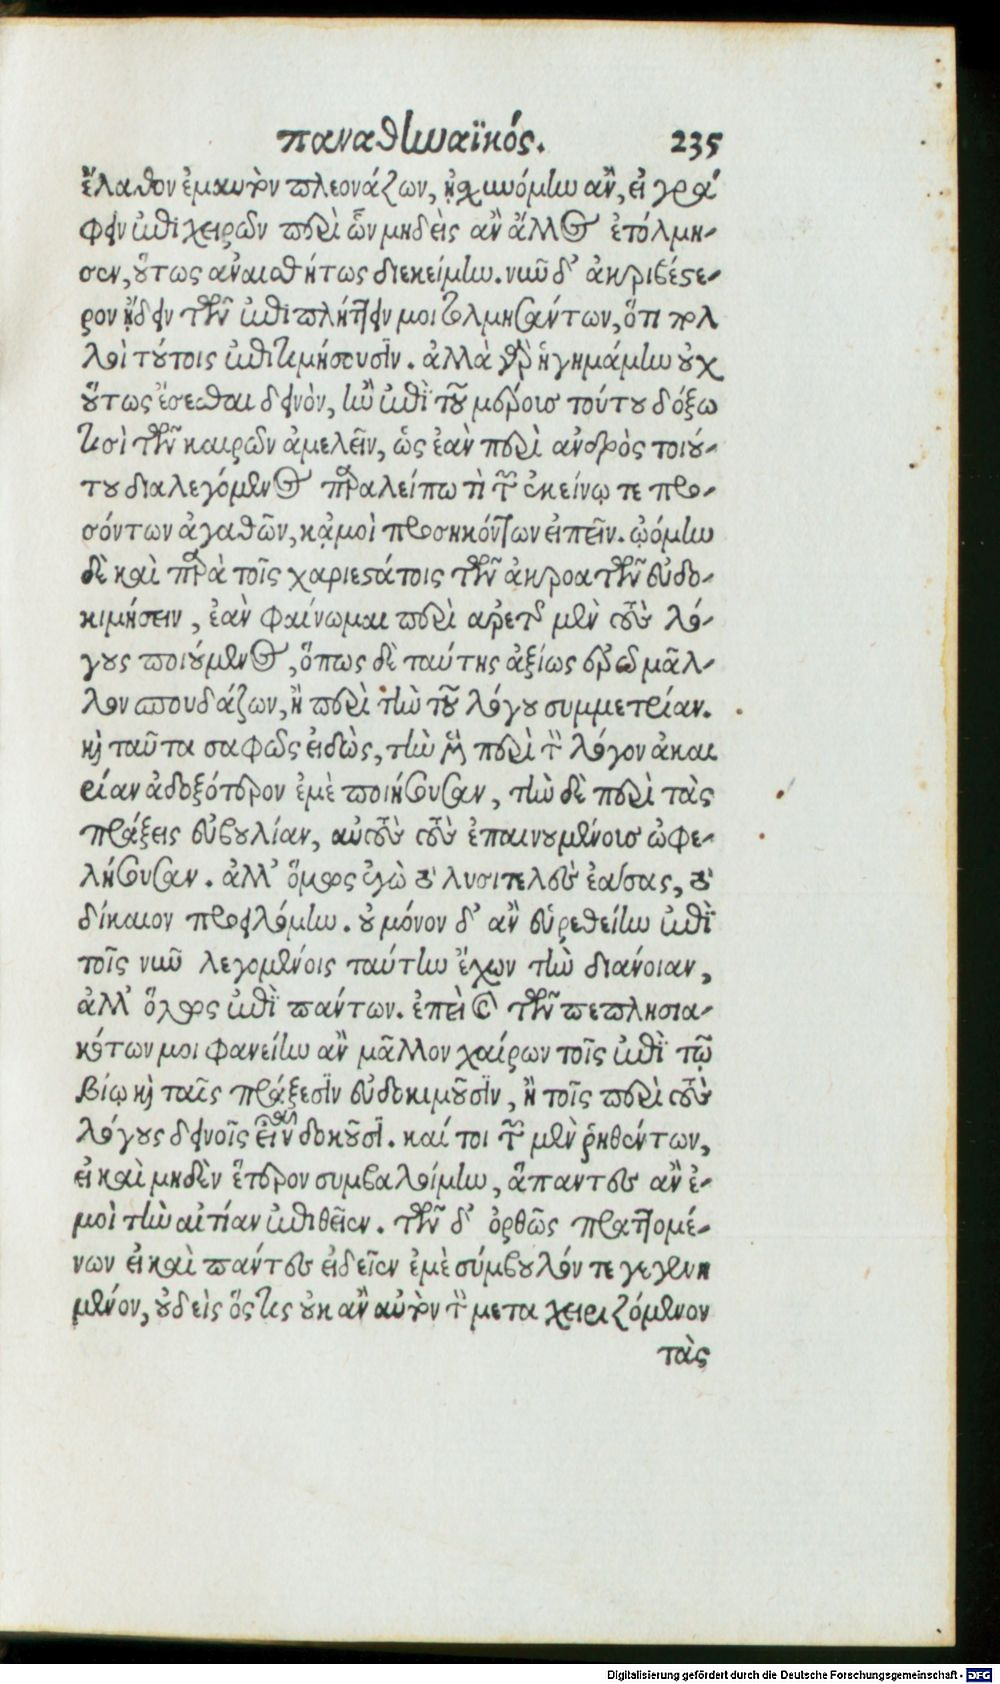 παναθηναϊκός. 235
ἔλαθον ἐμαυτὸν πλεονάζων, ᾐσχυνόμην ἂν, εἰ γρά
φειν ἐπιχειρῶν περὶ ὧν μηδεὶς ἂν ἄλλος ἐτόλμη-
σεν, οὕτως ἀναισθήτως διεκείμην. νῦν δ' ἀκριβέστε-
ρον ᾔδειν τῶν ἐπιπλήττειν μοι τολμησάντων, ὅτι πολ
λοὶ τούτοις ἐπιτιμήσουσιν. ἀλλὰ γὰρ ἡγησάμην οὐχ
οὕτως ἔσεσθαι δεινὸν, ἢν ἐπὶ τοῦ μέρους τούτου δόξω
τισὶ τῶν καιρῶν ἀμελεῖν, ὡς ἐὰν περὶ ἀνδρὸς τοιού-
του διαλεγόμενος παραλείπω τὶ τῶν ἐκείνῳ τε προ-
σόντων ἀγαθῶν, κᾀμοὶ προσηκόντων εἰπεῖν. ᾠόμην
δὲ καὶ παρὰ τοῖς χαριεστάτοις τῶν ἀκροατῶν εὐδο-
κιμήσειν, ἐὰν φαίνωμαι περὶ ἀρετῆς μὲν τοὺς λό-
γους ποιούμενος, ὅπως δὲ ταύτης ἀξίως ἐρῶ μᾶλ-
λον σπουδάζων, ἢ περὶ τὴν τοῦ λόγου συμμετρίαν.
καὶ ταῦτα σαφῶς εἰδὼς, τὴν μὲν περὶ τὸν λόγον ἀκαι
ρίαν ἀδοξότερον ἐμὲ ποιήσουσαν, τὴν δὲ περὶ τὰς
πράξεις εὐβουλίαν, αὐτοὺς τοὺς ἐπαινουμένους ὠφε-
λήσουσαν. ἀλλ' ὅμως ἐγὼ τὸ λυσιτελὲς ἐάσας, τὸ
δίκαιον προειλόμην. οὐ μόνον δ' ἂν εὑρεθείην ἐπὶ
τοῖς νῦν λεγομένοις ταύτην ἔχων τὴν διάνοιαν,
ἀλλ' ὅλως ἐπὶ πάντων. ἐπεὶ καὶ τῶν πεπλησια-
κότων μοι φανείην ἂν μᾶλλον χαίρων τοῖς ἐπὶ τῷ
βίῳ καὶ ταῖς πράξεσιν εὐδοκιμοῦσιν, ἢ τοῖς περὶ τοὺς
λόγους δεινοῖς εἶναι δοκοῦσι. καί τοι τῶν μὲν ῥηθέντων,
εἰ καὶ μηδὲν ἕτερον συμβαλοίμην, ἅπαντες ἂν ἐ-
μοὶ τὴν αἰτίαν ἐπιθεῖεν. τῶν δ' ὀρθῶς πραττομέ-
νων εἰ καὶ πάντες εἰδεῖεν ἐμὲ σύμβουλόν τε γεγενη
μένον, οὐδεὶς ὅστις οὐκ ἂν αὐτὸν τὸν μεταχειριζόμενον
τὰς
Digitalisierung gefördert durch die Deutsche Forschungsgemeinschaft - DFG